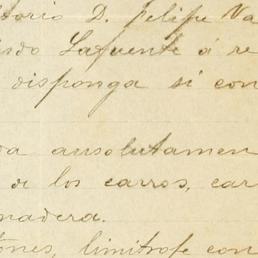 itorio D. Felipe Va
Lafuente á re
disponga si con
da ausolutamen
de los carros, car
madera.
ones, limitrofe con